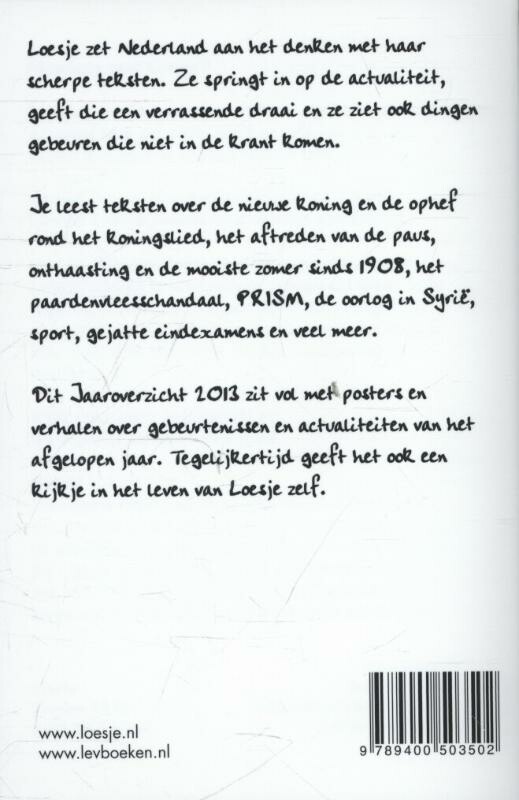 Loesje zet Nederland aan het denken met haar
scherpe teksten. Ze springt in op de actualiteit,
geeft die een verrassende draai en ze ziet ook dingen
gebeuren die niet in de krant komen.
Je leest teksten over de nieuwe koning en de ophef
rond het koningslied, het aftreden van de paus,
onthaasting en de mooiste zomer sinds 1908, het
paardenvleesschandaal, PRISM, de oorlog in Syrië,
sport, gejatte eindexamens en veel meer.
Dit Jaaroverzicht 2013 zit vol met posters en
verhalen over gebeurtenissen en actualiteiten van het
afgelopen jaar. Tegelijkertijd geeft het ook een
kijkje in het leven van Loesje zelf.
www.loesje.nl
www.levboeken.nl
9 789400 503502